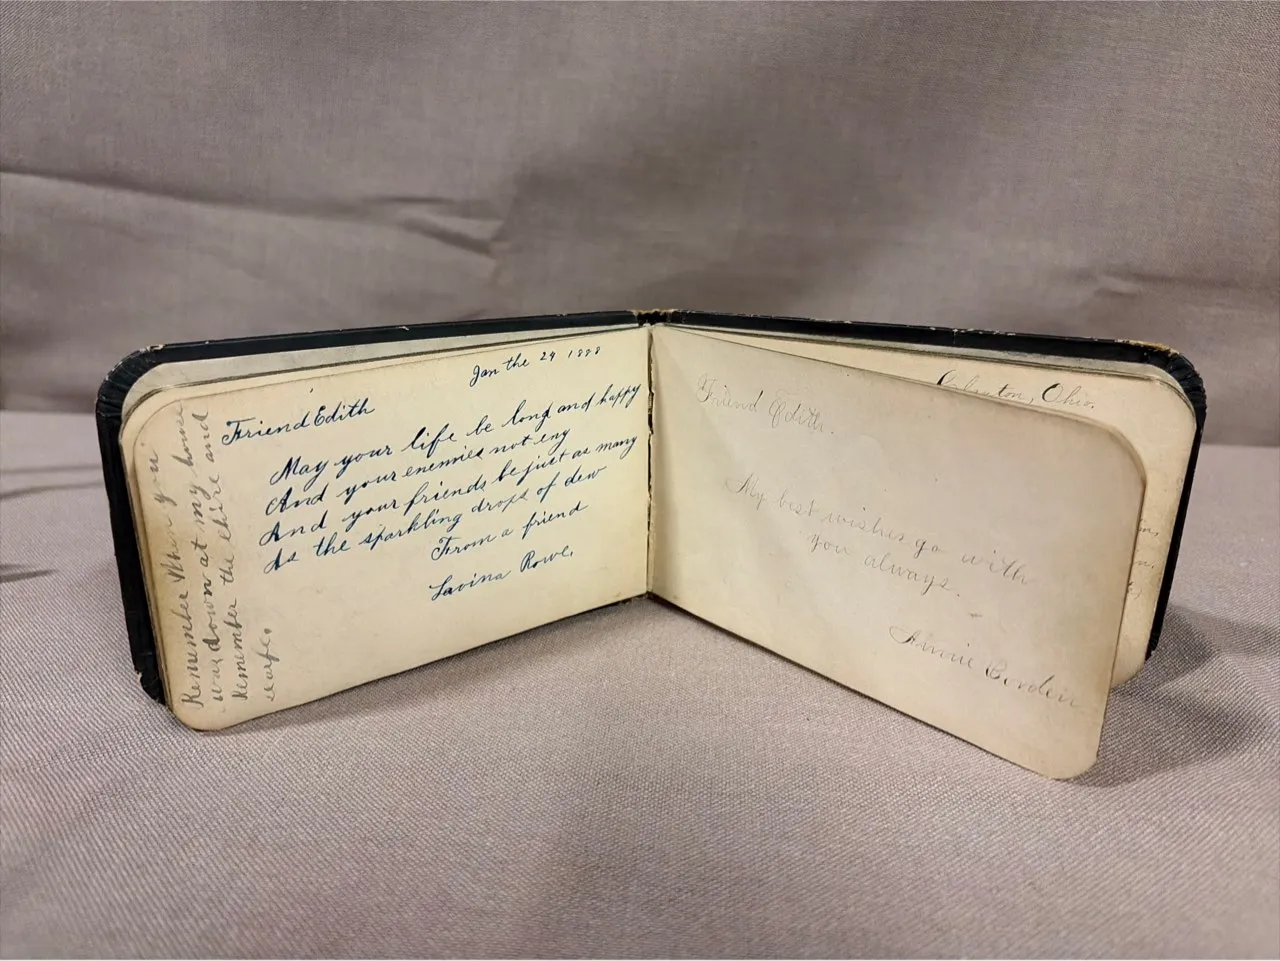 Jan the 24 1888
Friend Edith
May your life be long and happy
And your enemies not eny
And your friends be just as many
As the sparkling drops of dew
From a friend
Lavina Rowe.
Remember When you
was down at my house
Remember the chire and
Friend Edith.
My best wishes go with
you always.
Annie Borden
Ohio.